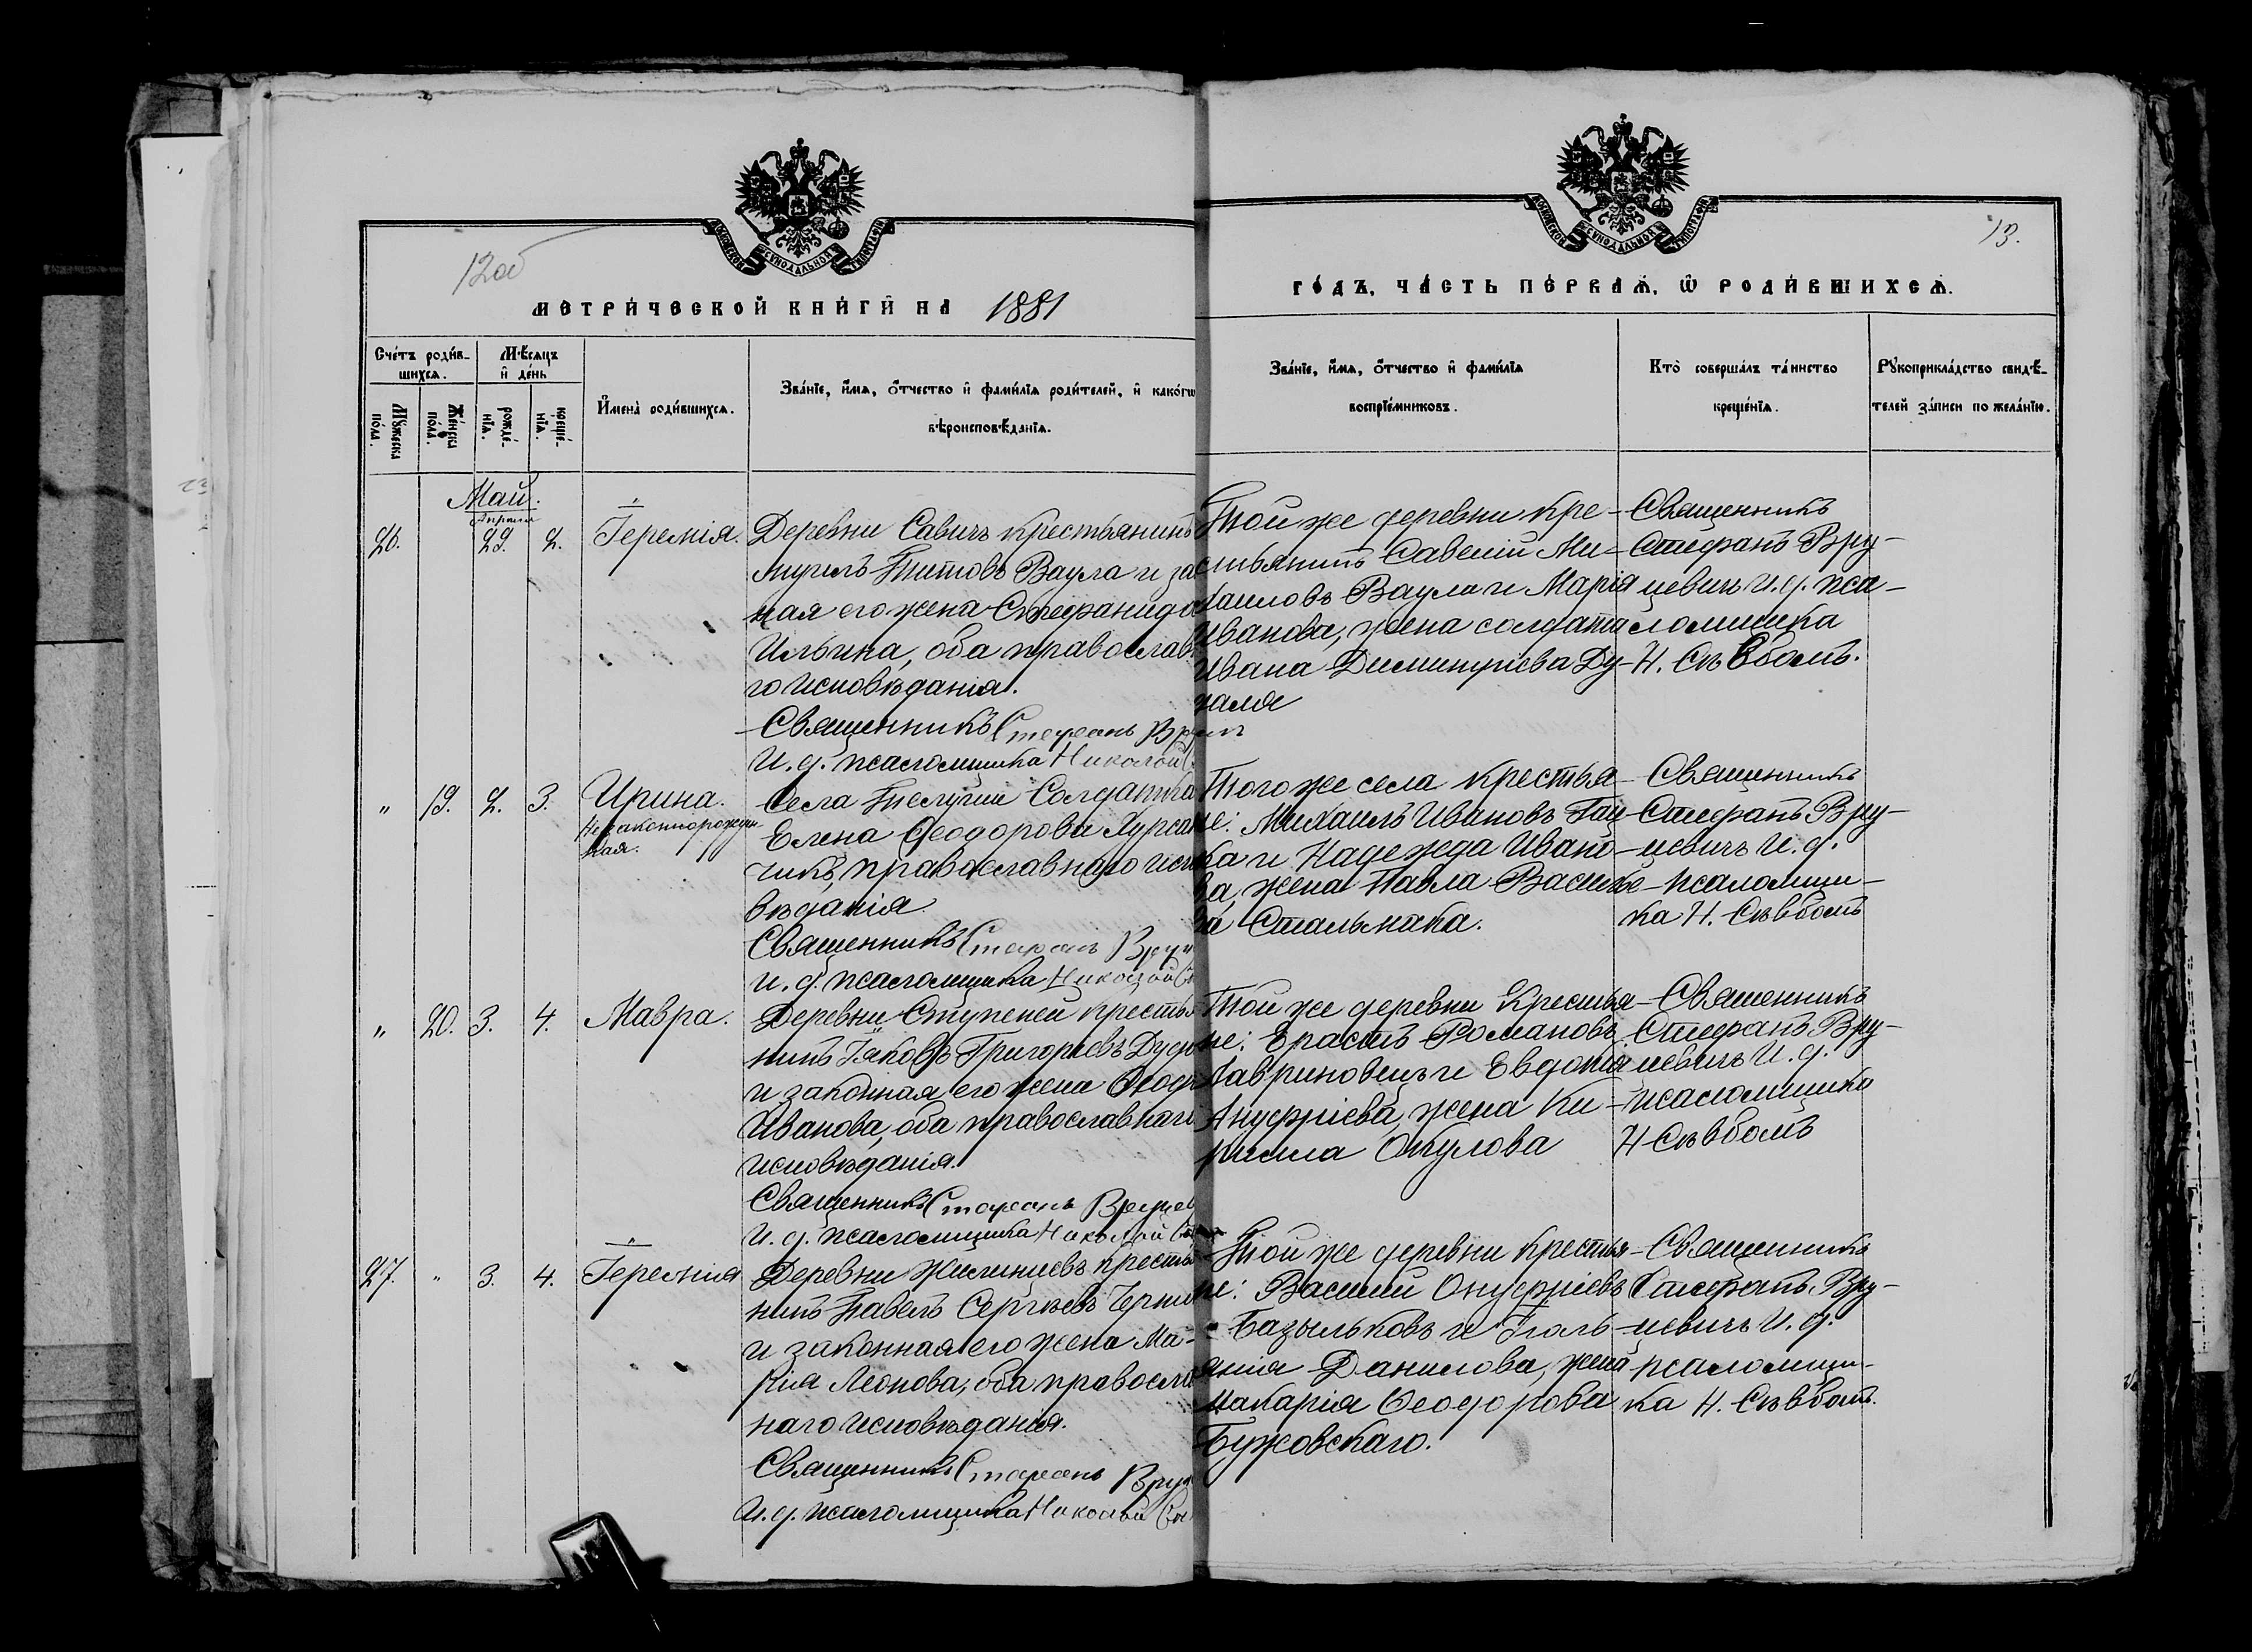 12об
13.
МЕТРИЧЕСКОЙ КНИГИ НА 1881
ГОДЪ, ЧАСТЬ ПЕРВАЯ, Ѿ РОДИВШИХСЯ.
Счетъ родив-
шихся.
Мѣсяцъ
и день
Мужеска
пола.
Женска
пола.
рожде-
нія.
креще-
нія.
Имена родившихся.
Званіе, имя, отчество и фамилія родителей, и какогѡ
вѣроисповѣданія.
Званіе, имя, отчество и фамилія
воспріемниковъ.
Кто совершалъ таинство
крещенія.
Рукоприкладство свидѣ-
телей записи по желанію.
Май.
Апрѣля
26. 29. 2. Іеремія.
Деревни Савичъ крестьянинъ
Титовъ Ваула и за
ная его жена Стефанида
Ильина, оба православн
го исповѣданія.
Священникъ Стефанъ
И. д. псаломщика Николай
Той же деревни кре-
стьянинъ Савелій Ми-
хаиловъ Ваула и Марія
Иванова, жена солдата
Ивана Димитріева Ду-
Священникъ
Стефанъ Вру-
цевичъ И. д. пса-
ломщика
Н. Съвболъ.
" 19. 2. 3. Ирина.
Незаконнорожден-
ная.
Села Телуши Солдатка
Елена Ѳеодорова Хурсан
чикъ, православнаго испо
вѣданія
Священникъ Стефанъ
И. д. псаломщика Николай
Того же села крестья-
не: Михаилъ Ивановъ Гац-
ка и Надежда Ивано-
ва, жена Павла Василье-
ва Стальмака.
Священникъ
Стефанъ Вру-
цевичъ И. д.
псаломщи-
ка Н. Съвболъ
" 20. 3. 4. Мавра.
Деревни Ступеней крестья
нинъ Іаковъ Григорьевъ
и законная его жена Ѳеод
Иванова, оба православнаго
исповѣданія.
Священникъ Стефанъ Вруцев
И. д. псаломщика Николай
Той же деревни крестья-
не: Ерастъ Романовъ
Лавриновецъ и Евдокія
Ануфріева, жена Ки-
рилла Окулова
Священникъ
Стефанъ Вру-
цевичъ И. д.
псаломщика
Н Съвболъ
27. " 3. 4. Іеремія
Деревни Жилиничевъ крестья
нинъ Павелъ Сергѣевъ
и законная его жена Ма-
рія Леонова, оба правосла
наго исповѣданія.
Священникъ Стефанъ
И. д. псаломщика Николай
Той же деревни крестья-
не: Василій Онуфріевъ
Базыльковъ и Іуль-
янія Данилова, жена
Макарія Ѳеодорова
Бужовскаго.
Священникъ
Стефанъ Вру-
цевичъ И. д.
псаломщи-
ка Н. Съвболъ.